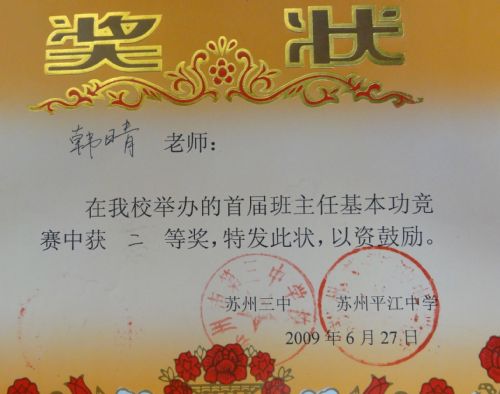 奖 状
韩晴 老师：
在我校举办的首届班主任基本功竞
赛中获 二 等奖，特发此状，以资鼓励。
苏州三中 苏州平江中学
2009 年 6 月 27 日